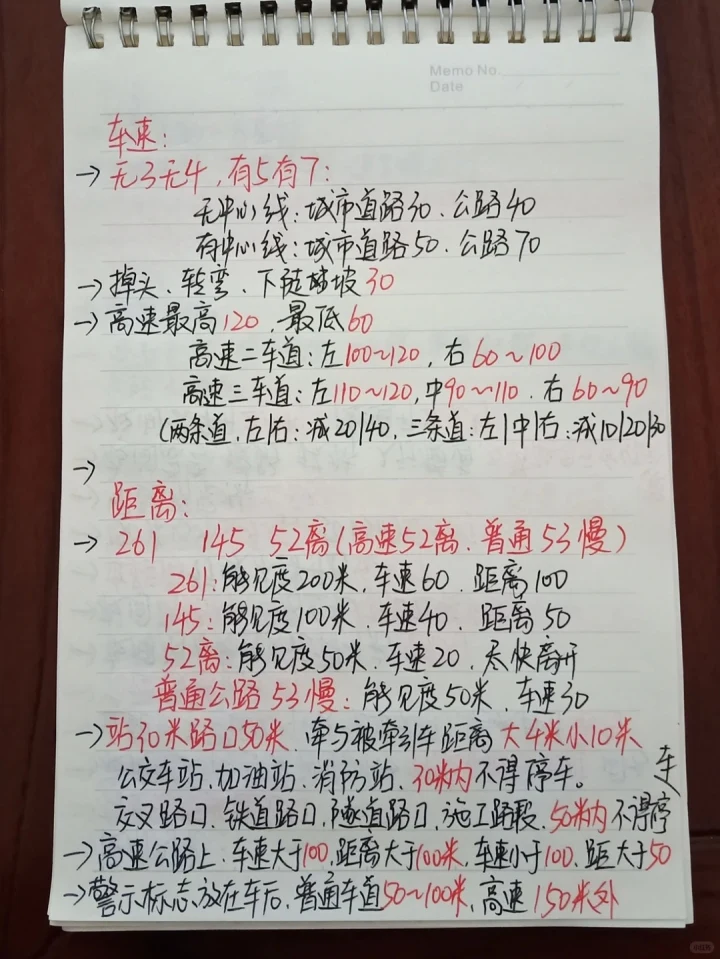 Memo No.
Date
车速:
→ 无3无4,有5有7:
无中心线:城市道路30、公路40
有中心线:城市道路50、公路70
→ 掉头、转弯、下陡坡30
→ 高速最高120,最低60
高速二车道:左100~120,右60~100
高速三车道:左110~120,中90~110、右60~90
(两条道,左|右:减20|40,三条道:左|中|右:减10|20|30
→
距离:
→ 261 145 52离(高速52离、普通53慢)
261:能见度200米,车速60、距离100
145:能见度100米、车速40、距离50
52离:能见度50米、车速20、尽快离开
普通公路53慢:能见度50米、车速30
→ 站30米路口50米、牵与被牵引车距离大4米小10米
公交车站、加油站、消防站、30米内不得停车。
交叉路口、铁道路口、隧道路口、施工路段、50米内不得停车
→ 高速公路上:车速大于100,距离大于100米,车速小于100、距大于50
→ 警示标志放在车后、普通车道50~100米,高速150米外